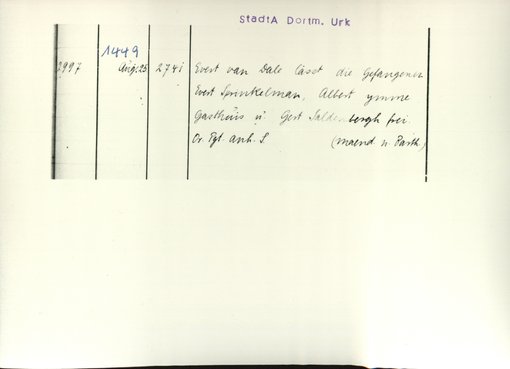 StadtA Dortm. Urk
1449
2997 Aug. 25 2741 Evert van Dale lässt die Gefangenen
Evert Sprinkelman, Albert ymme
Gasthuis u. Gert Saldenbergh frei.
Or. Pgt. anh. S. (maend. n. Barth.)